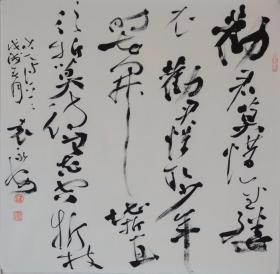 勸君莫惜金縷
衣勸君惜取少年
時花開堪折直
須折莫待無花空折枝